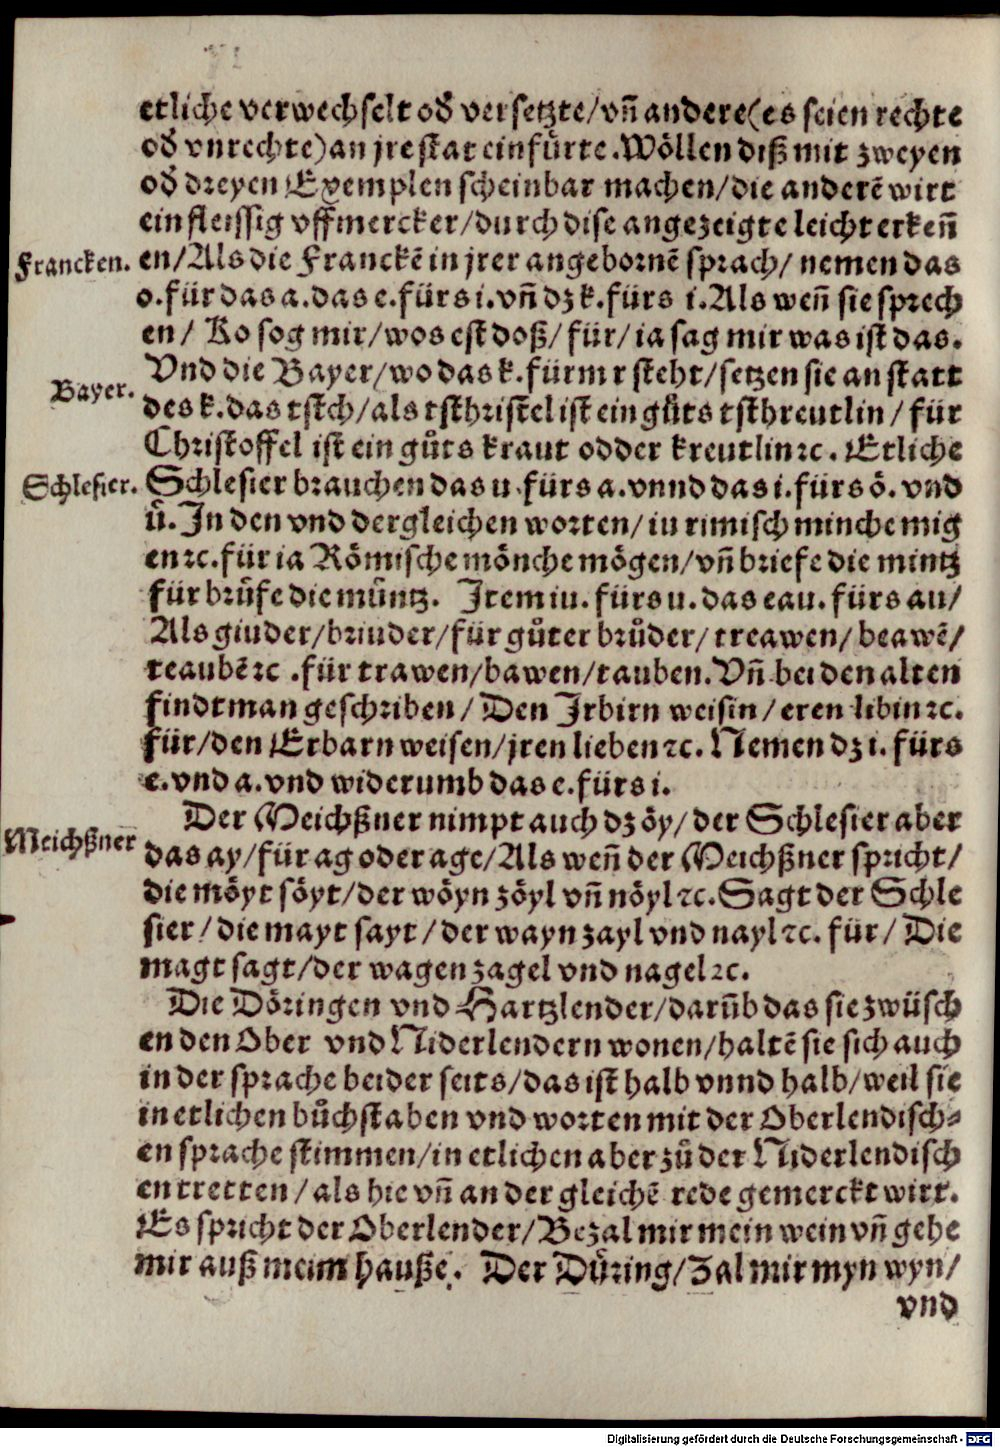 etliche verwechselt od̕ versetzte/vñ andere(es seien rechte
od̕ vnrechte)an jre stat einfürte. Wöllen diß mit zweyen
od̕ dreyen Exemplen scheinbar machen/die anderẽ wirt
ein fleissig vffmercker/durch dise angezeigte leicht erkeñ
Francken. en/Als die Franckẽ in jrer angebornẽ sprach/ nemen das
o. für das a. das e. fürs i. vñ dz k. fürs i. Als weñ sie sprech
en/ Ko sog mir/wos est doß/ für/ ia sag mir was ist das.
Bayer. Vnd die Bayer/wo das k. fürm r steht/setzen sie an statt
des k. das tstch/als tsthristel ist ein gůts tsthreutlin/ für
Christoffel ist ein gůts kraut odder kreutlin ꝛc. Etliche
Schlesier. Schlesier brauchen das u. fürs a. vnnd das i. fürs ö. vnd
ü. In den vnd dergleichen worten/ iu rimisch minche mig
en ꝛc. für ia Römische mönche mögen/vñ briefe die mintz
für brüfe die müntz. Item iu. fürs u. das eau. fürs au/
Als giuder/briuder/für gůter brůder/ treawen/ beawẽ/
teaubẽ ꝛc . für trawen/bawen/tauben. Vñ bei den alten
findt man geschriben/ Den Irbirn weisin/ eren libin ꝛc.
für/den Erbarn weisen/jren lieben ꝛc. Nemen dz i. fürs
e. vnd a. vnd widerumb das e. fürs i.
Meichßner Der Meichßner nimpt auch dz öy/ der Schlesier aber
das ay/für ag oder age/Als weñ der Meichßner spricht/
die möyt söyt/der wöyn zöyl vñ nöyl ꝛc. Sagt der Schle
sier/die mayt sayt/der wayn zayl vnd nayl ꝛc. für/ Die
magt sagt/der wagen zagel vnd nagel ꝛc.
Die Döringen vnd Hartzlender/darũb das sie zwüsch
en den Ober vnd Niderlendern wonen/haltẽ sie sich auch
in der sprache beider seits/das ist halb vnnd halb/weil sie
in etlichen bůchstaben vnd worten mit der Oberlendisch⸗
en sprache stimmen/in etlichen aber zů der Niderlendisch
en tretten/als hie vñ an der gleichẽ rede gemerckt wirt.
Es spricht der Oberlender/Bezal mir mein wein vñ gehe
mir auß meim hauße. Der Düring/Zal mir myn wyn/
vnd
Digitalisierung gefördert durch die Deutsche Forschungsgemeinschaft - DFG